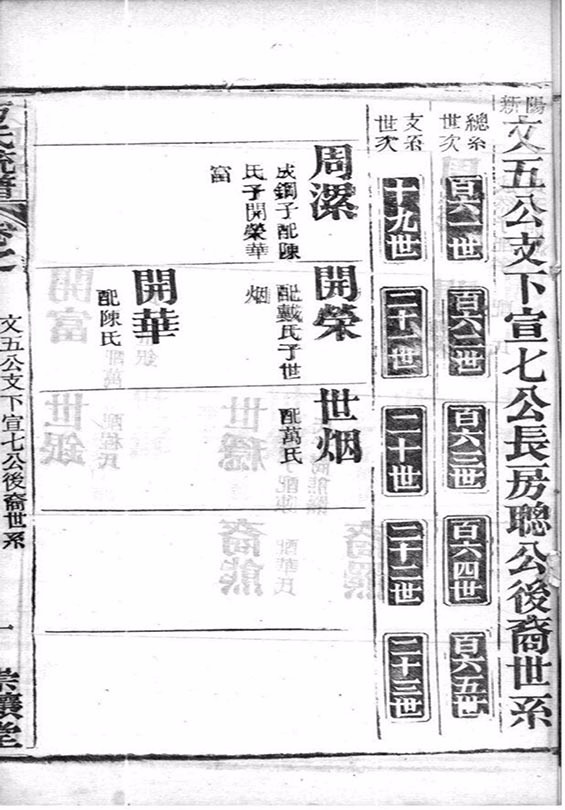 陽新
文五公支下宣七公長房聰公後裔世系
總系
世次
百六一世
百六二世
百六三世
百六四世
百六五世
支系
世次
十九世
二十一世
二十世
二十二世
二十三世
周漯
成鋼子配陳
氏子開榮華
富
開榮
配戴氏子世
烟
開華
配陳氏
世烟
配萬氏
氏統譜
文五公支下宣七公後裔世系
一